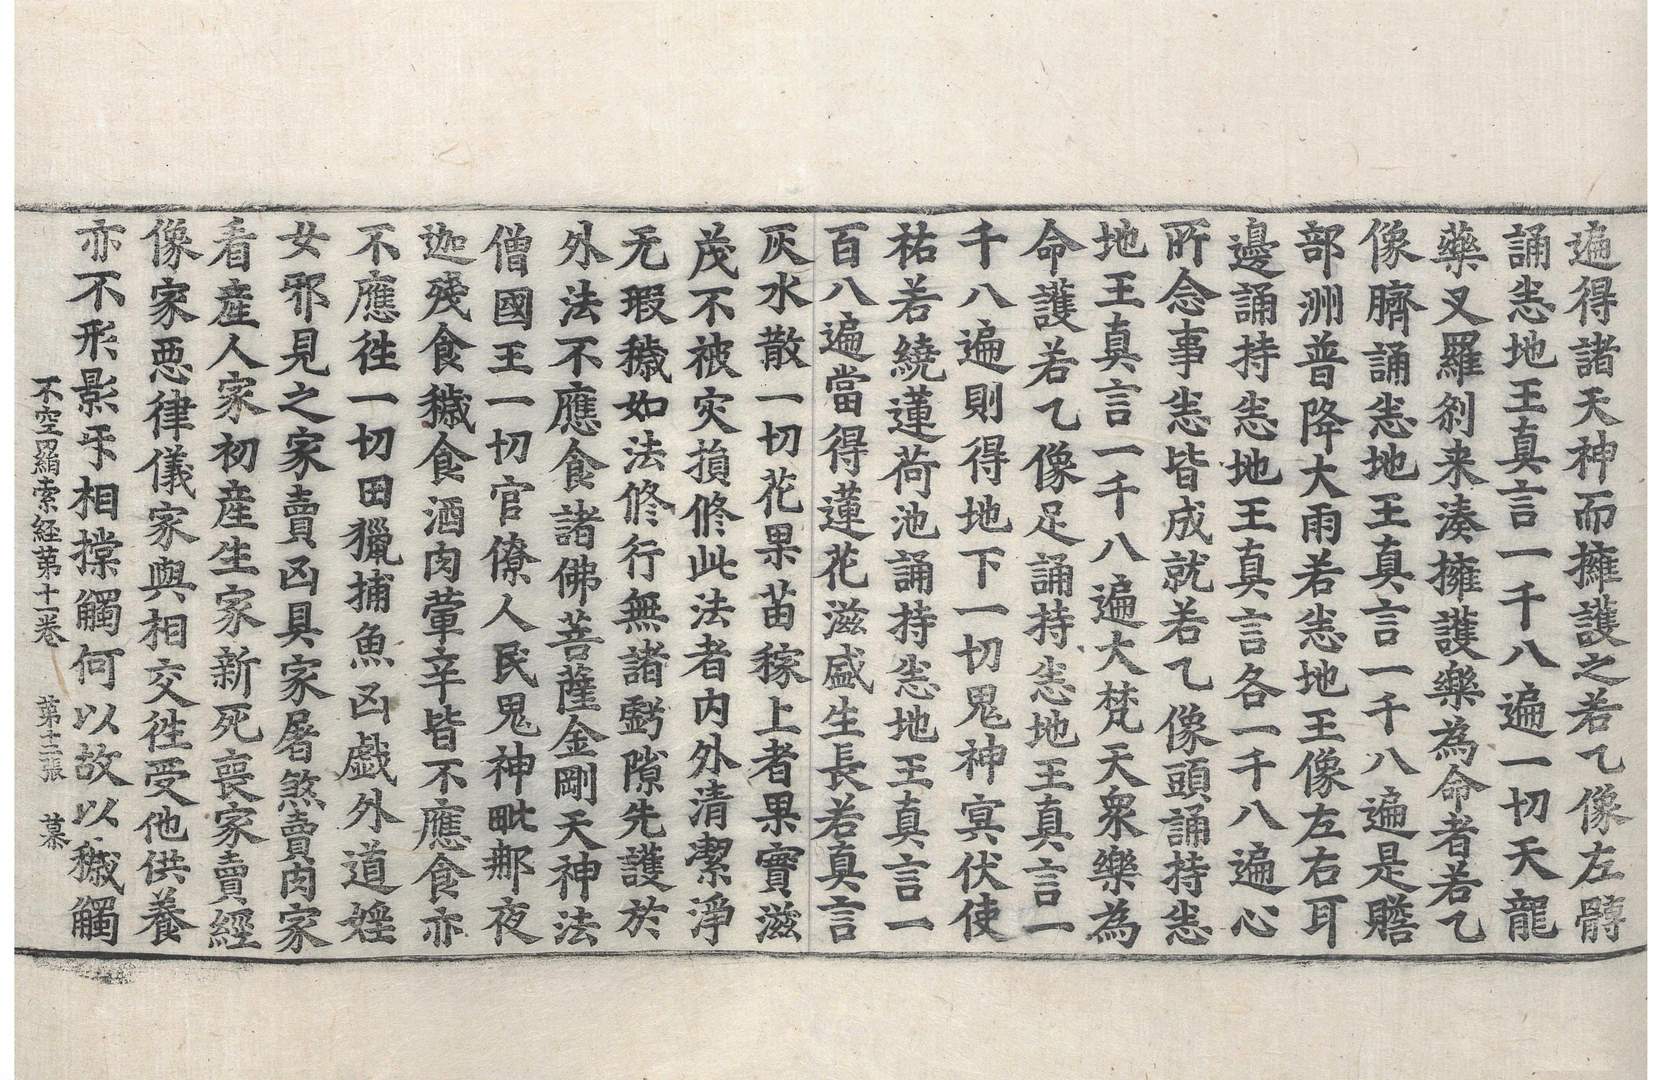 遍得諸天神而擁護之若乙像左髆
誦恚地王真言一千八遍一切天龍
藥叉羅剎来湊擁護樂為命者若乙
像臍誦恚地王真言一千八遍是贍
部洲普降大雨若恚地王像左右耳
邊誦持恚地王真言各一千八遍心
所念事恚皆成就若乙像頭誦持恚
地王真言一千八遍大梵天衆樂為
命護若乙像足誦持恚地王真言一
千八遍則得地下一切鬼神冥伏使
祐若繞蓮荷池誦持恚地王真言一
百八遍當得蓮花滋盛生長若真言
灰水散一切花果苗稼上者果實滋
茂不被灾損修此法者內外清潔淨
无瑕穢如法修行無諸虧隙先護於
外法不應食諸佛菩薩金剛天神法
僧國王一切官僚人民鬼神毗那夜
迦殘食穢食酒肉葷辛皆不應食亦
不應往一切田獵捕魚凶戲外道婬
女邪見之家賣凶具家屠煞賣肉家
看産人家初産生家新死喪家賣經
像家惡律儀家與相交往受他供養
亦不形影牙相摚觸何以故以穢觸
不空羂索経第十一卷　第十二張　慕